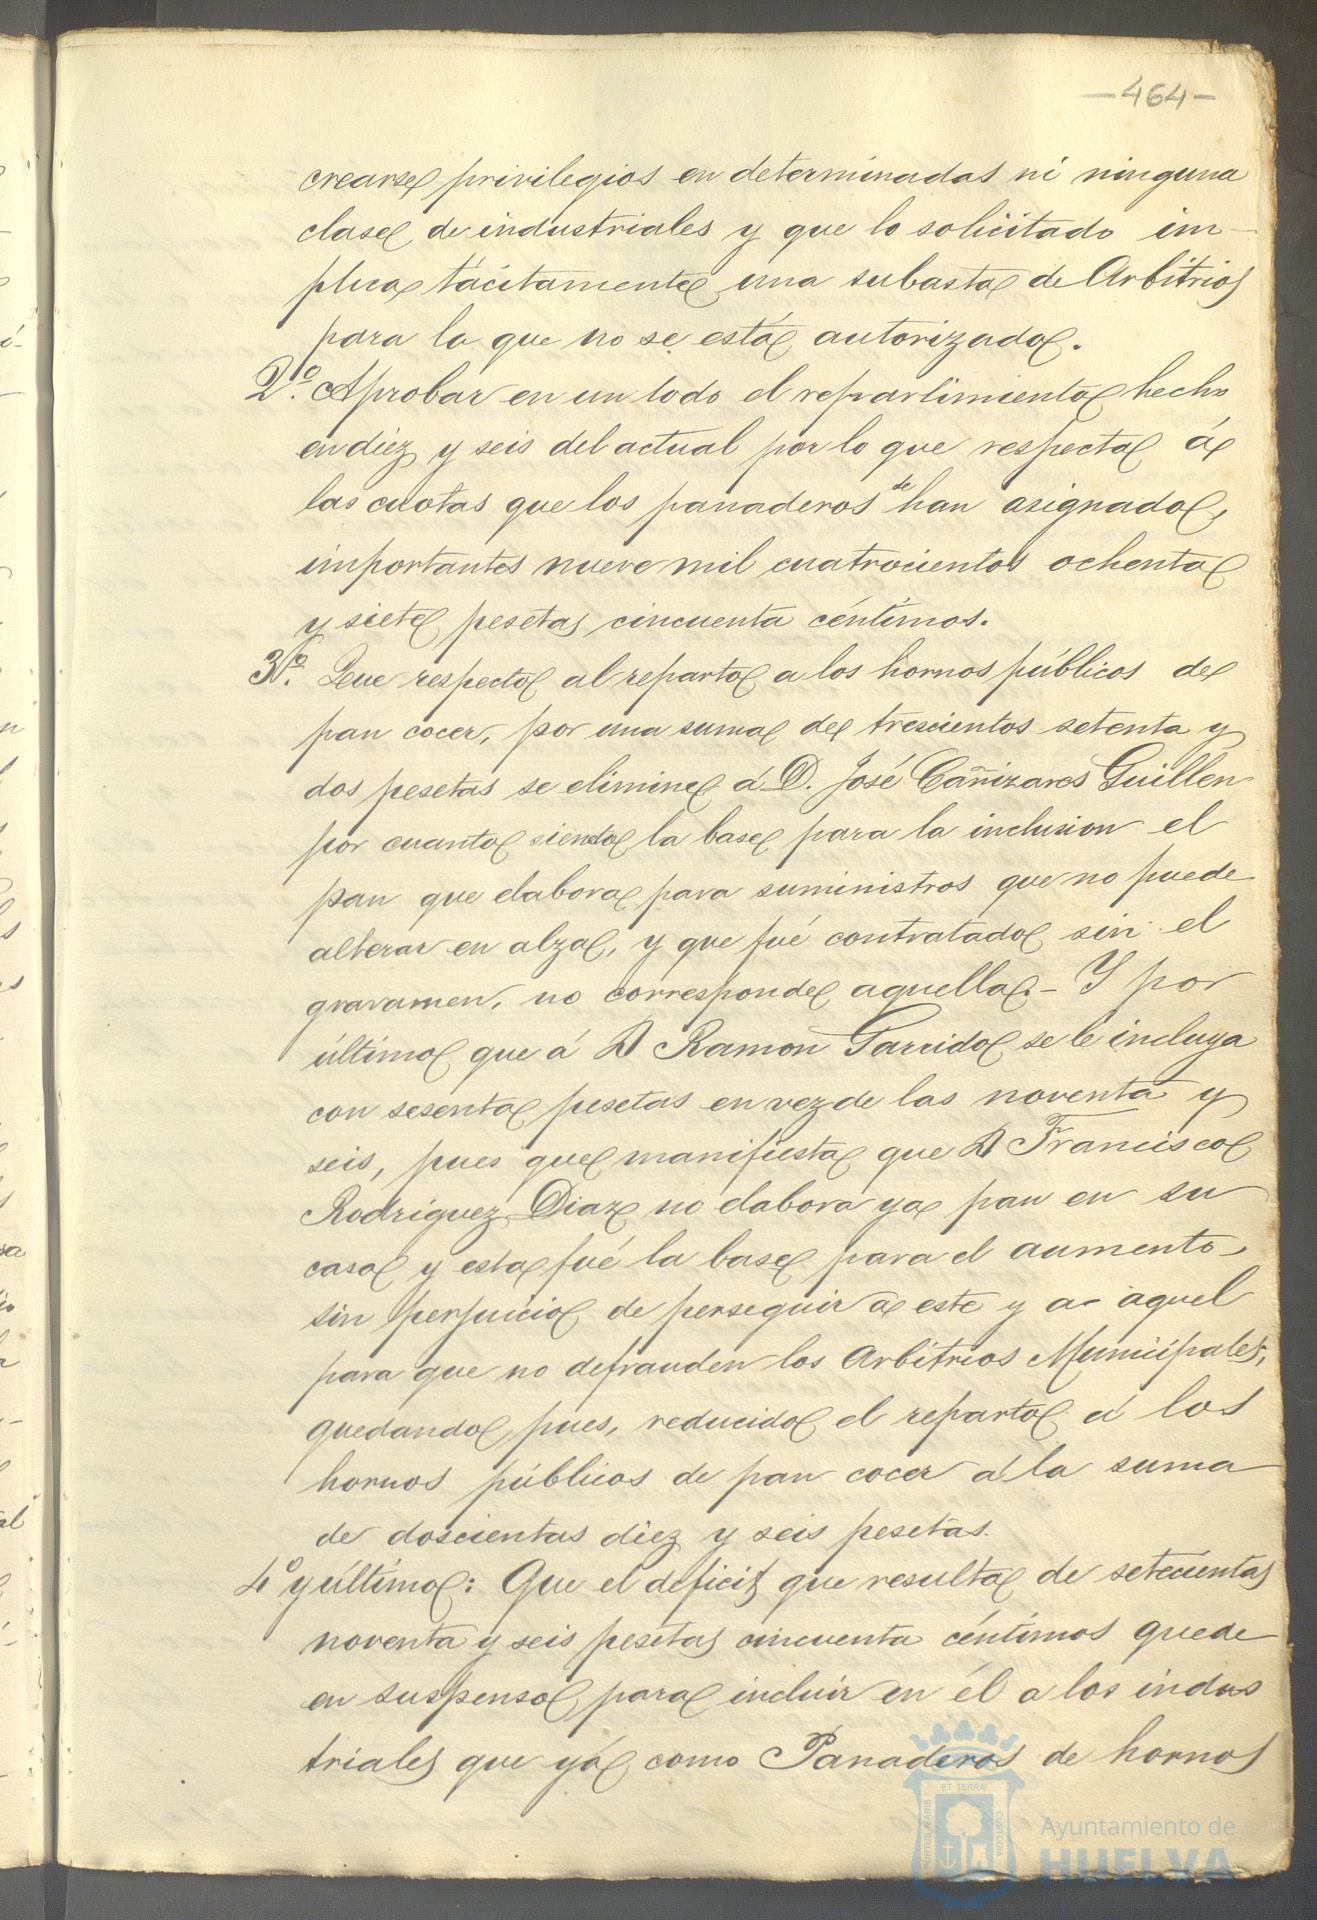 —464—
crearse privilegios en determinadas ni ninguna
clase de industriales y que lo solicitado im-
plica tácitamente una subasta de Arbitrios
para la que no se está autorizado.
2º. Aprobar en un todo el repartimiento hecho
en diez y seis del actual por lo que respecta á
las cuotas que los panaderos se han asignado,
importantes nueve mil cuatrocientos ochenta
y siete pesetas cincuenta céntimos.
3º. Que respecto al reparto a los hornos públicos de
pan cocer, por una suma de trescientos setenta y
dos pesetas se elimine á D. José Cañizares Guillen
por cuanto siendo la base para la inclusion el
pan que elabora para suministros que no puede
alterar en alza, y que fué contratado sin el
gravamen, no corresponde aquella.- Y por
último que á D Ramon Garrido se le incluya
con sesenta pesetas en vez de las noventa y
seis, pues que manifiesta que D Francisco
Rodriguez Diaz no elabora ya pan en su
casa y esta fué la base para el aumento
sin perjuicio de perseguir a este y a aquel
para que no defrauden los Arbitrios Municipales,
quedando, pues, reducido el reparto á los
hornos públicos de pan cocer á la suma
de doscientas diez y seis pesetas.
4º y último: Que el deficit que resulta de setecientas
noventa y seis pesetas cincuenta céntimos quede
en suspenso, para incluir en él a los indus
triales que ya como Panaderos de hornos
PORTUS MARIS ET TERRAE CUSTODIA
Ayuntamiento de
HUELVA